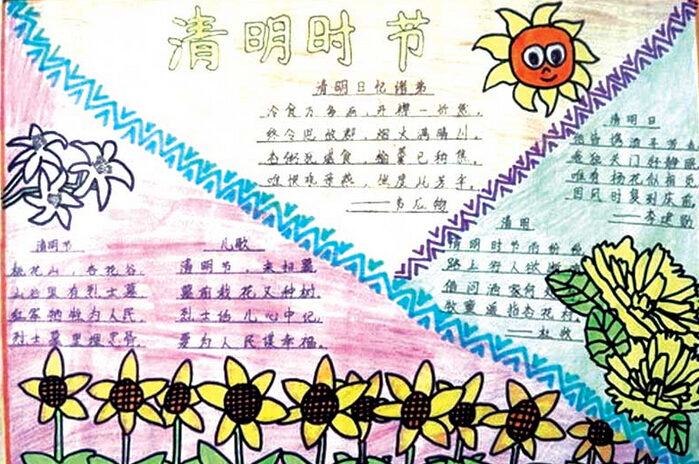 清明时节
清明日忆诸弟
冷食方多病,开襟一忻然。
终令思故郡,烟火满晴川。
杏粥犹堪食,榆羹已稍煎。
唯恨乖亲燕,坐度此芳年。
——韦应物
清明日
他皆携酒寻芳
我独关门好静眠
唯有杨花似相
因风时复到床前
——李建勋
清明
清明时节雨纷
路上行人欲断
借问酒家何
牧童遥指杏花村
——杜牧
清明节
桃花山,杏花谷,
山谷里有烈士墓,
红军牺牲为人民,
烈士墓里埋忠骨。
儿歌
清明节,来扫墓,
墓前栽花又种树。
烈士 心中记,
要为人民谋幸福。